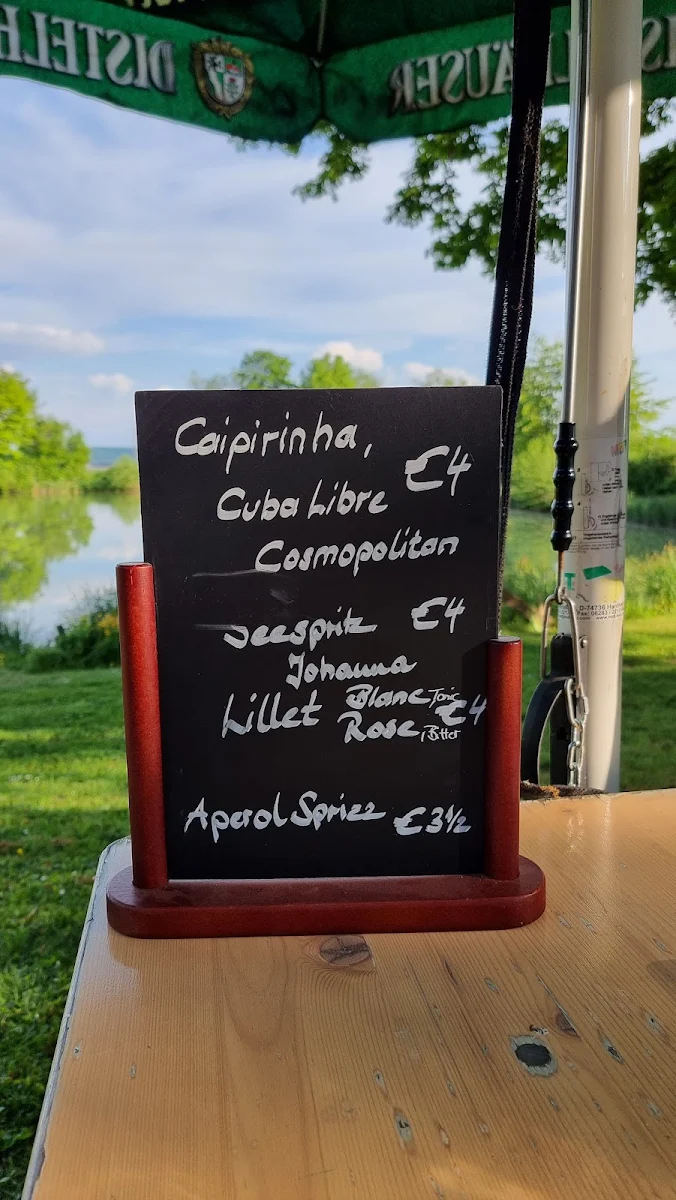 DISTELH
ÄUSER
Caipirinha,
€4
Cuba Libre
Cosmopolitan
Seespritz €4
Johanna
Lillet Blanc Tonic €4
Rose, Bitter
Aperol Sprizz €3½
D-74736 Hard